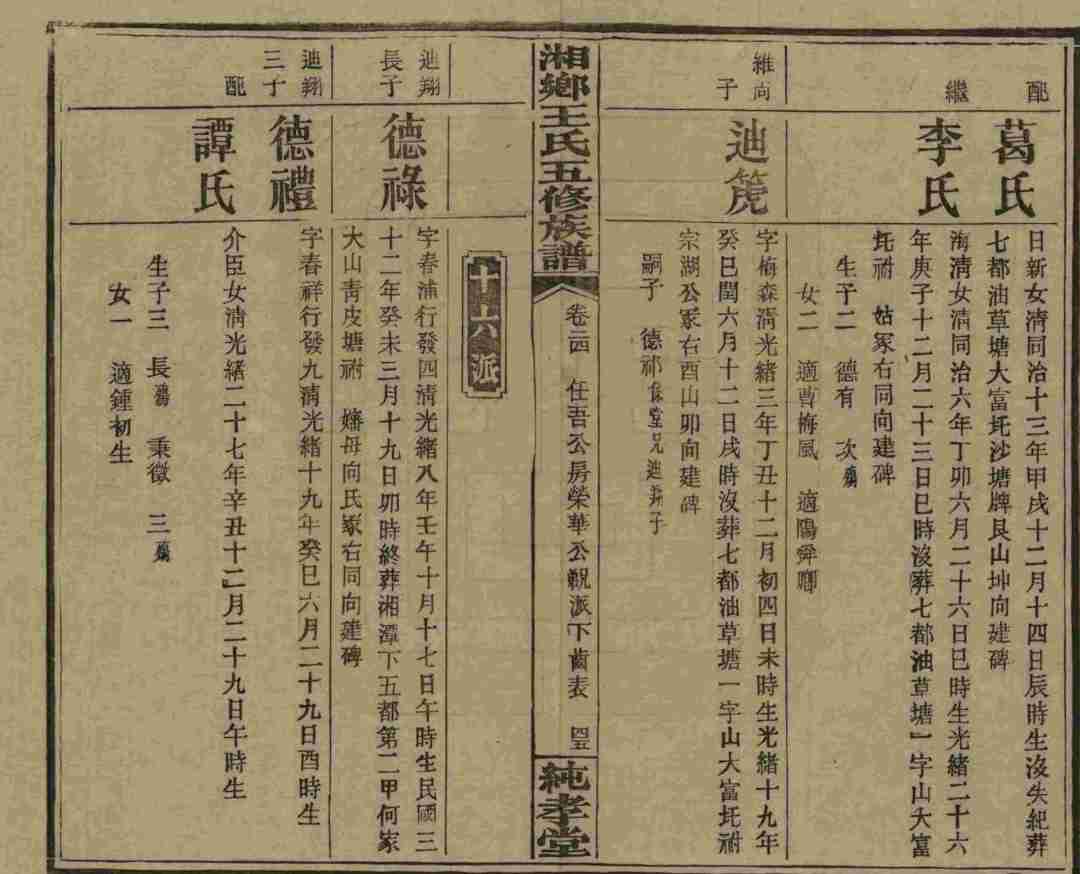 配
葛氏
日新女清同治十三年甲戌十二月十四日辰時生沒失紀葬
七都油草塘大富坵沙塘牌艮山坤向建碑
繼
李氏
海清女清同治六年丁卯六月二十六日巳時生光緒二十六
年庚子十二月二十三日巳時沒葬七都油草塘一字山大富
坵祔 姑冢右同向建碑
生子二 德有 次殤
女二 適曹梅風 適陽舜卿
維尚
子
迪箎
字梅森清光緒三年丁丑十二月初四日未時生光緒十九年
癸巳閏六月十二日戌時沒葬七都油草塘一字山大富坵祔
宗湖公冢右酉山卯向建碑
嗣子 德祁 堂兄迪 子
湘鄉王氏五修族譜
卷二四 任吾公房榮華公 派下齒表 四五
純孝堂
十六派
迪翔
長子
德祿
字春浦行發四清光緒八年壬午十月十七日午時生民國三
十二年癸未三月十九日卯時終葬湘潭下五都第二甲何家
大山靑皮塘祔 嬸母向氏冢右同向建碑
迪翔
三子
德禮
字春祥行發九清光緒十九年癸巳六月二十九日酉時生
配
譚氏
介臣女清光緒二十七年辛丑十二月二十九日午時生
生子三 長殤 秉徵 三殤
女一 適鍾初生